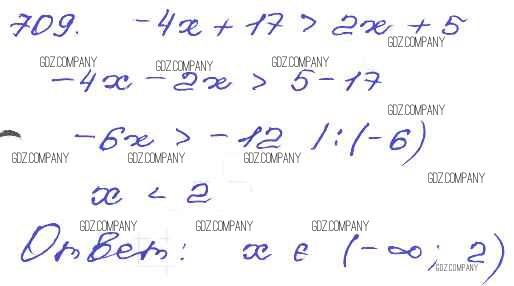 709. -4x + 17 > 2x + 5
GDZ.COMPANY
GDZ.COMPANY GDZ.COMPANY GDZ.COMPANY
-4x - 2x > 5 - 17
GDZ.COMPANY
-6x > -12 /:(-6)
GDZ.COMPANY GDZ.COMPANY GDZ.COMPANY
GDZ.COMPANY
x < 2
GDZ.COMPANY GDZ.COMPANY GDZ.COMPANY
Ответ: x ∈ (-∞; 2)
GDZ.COMPANY